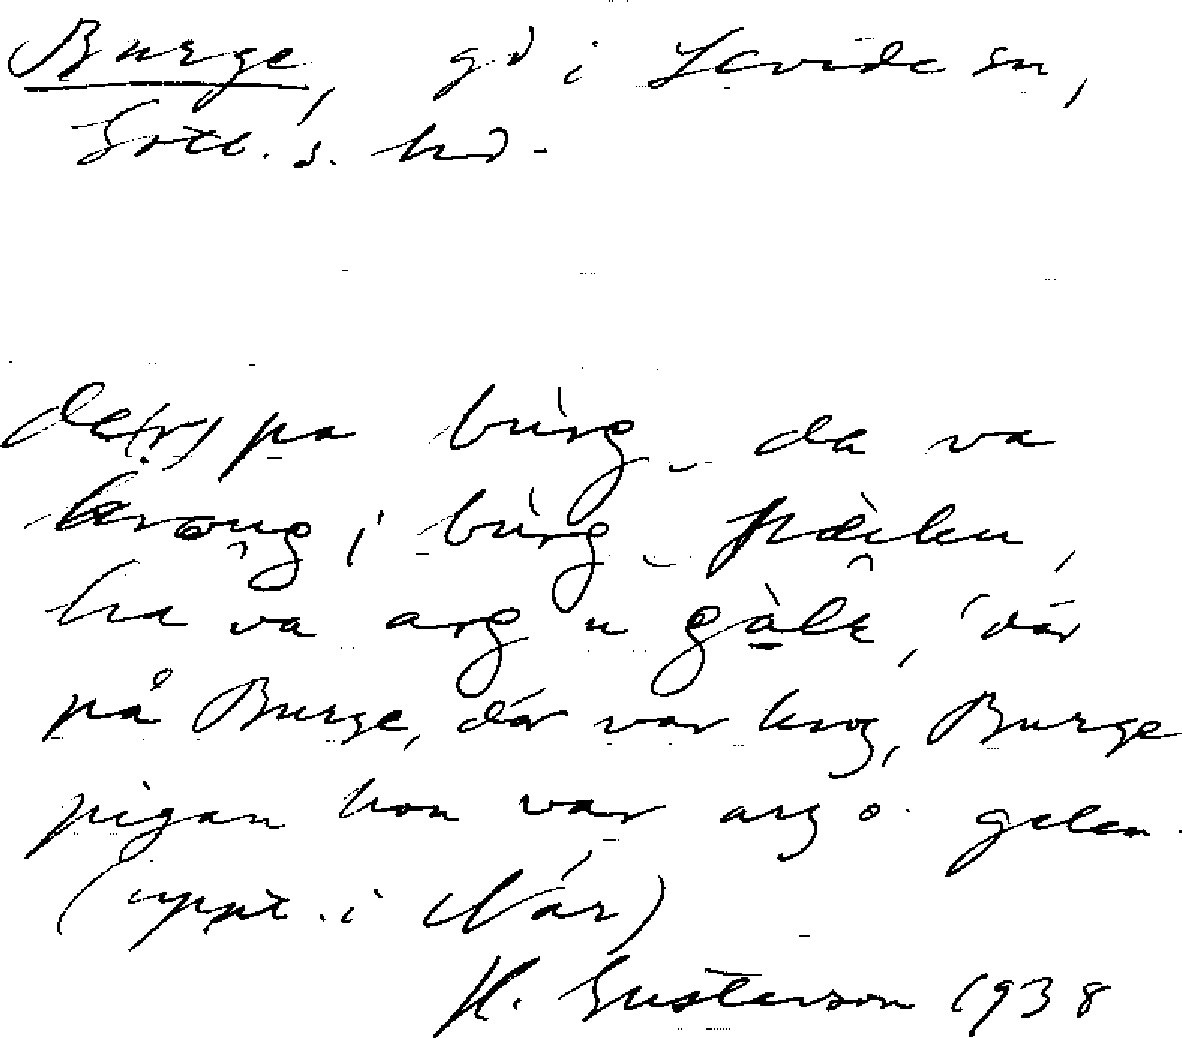 Burge, gd i Levide sn,
Gotl. s. hd.
de(r) pa bùrg da va
krong i bùrg pæiku,
ha va arg u gàlę, 'där
på Burge, där var krog, Burge
pigan hon var arg o. galen.
(uppt. i När)
H. Gustavson 1938